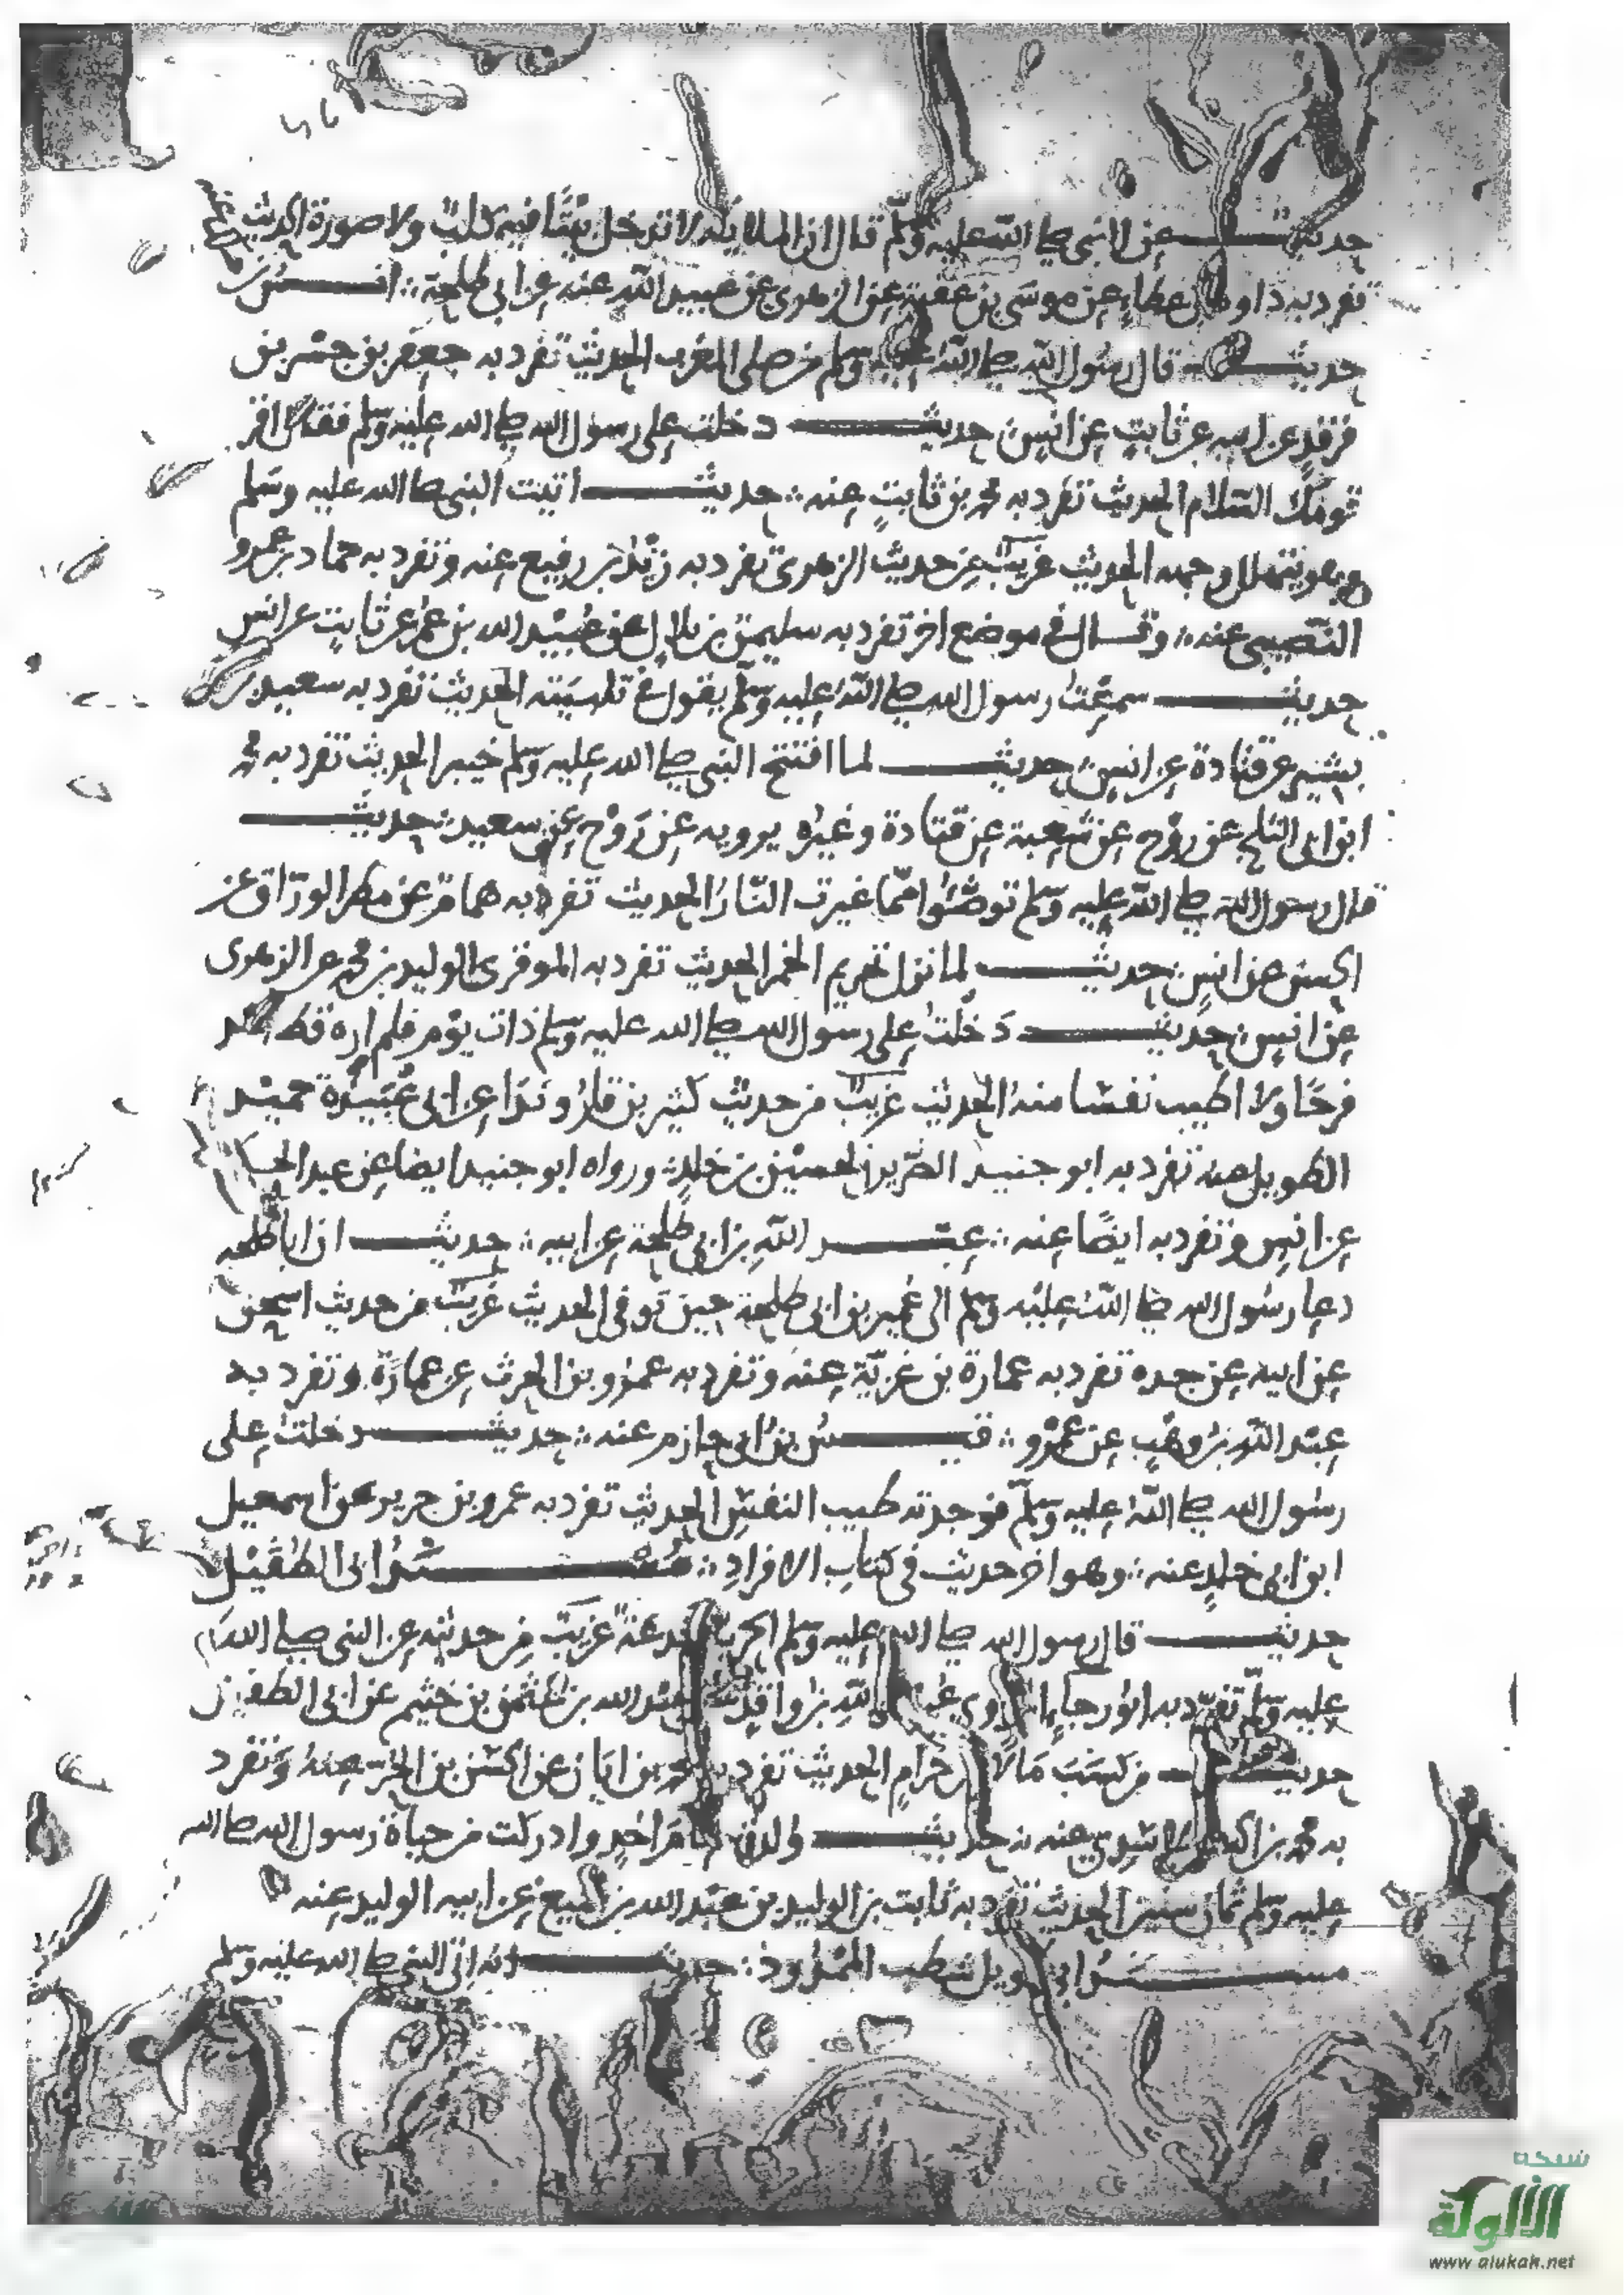 حديث عن النبي صلى الله عليه وسلم قال ان الملايكة لا تدخل بيتا فيه كلب ولا صورة الحديث
تفرد به داود بن عطاء عن موسى بن عقبة عن الزهري عن عبيد الله عنه عن ابي طلحة انس
حديث قال رسول الله صلى الله عليه وسلم من صلى المغرب الحديث تفرد به جعفر بن جسر بن
فرقد عن ابيه عن ثابت عن انس حديث دخلت على رسول الله صلى الله عليه وسلم فقال اقر
قومك السلام الحديث تفرد به محمد بن ثابت عنه حديث اتيت النبي صلى الله عليه وسلم
وهو يتهلل وجهه الحديث غريب من حديث الزهري تفرد به رفيع عنه وتفرد به حماد بن عمرو
النصيبي عنه وقال في موضع اخر تفرد به سليمن بن بلال عن عبيد الله بن عمر عن ثابت عن انس
حديث سمعت رسول الله صلى الله عليه وسلم يقول في تلبيته الحديث تفرد به سعيد بن
بشير عن قتادة عن انس حديث لما افتتح النبي صلى الله عليه وسلم خيبر الحديث تفرد به محمد
ابن ابي الثلج عن روح عن شعبة عن قتادة وغيره يرويه عن روح عن سعيد حديث
قال رسول الله صلى الله عليه وسلم توضئوا مما غيرت النار الحديث تفرد به همام عن مطر الوراق عن
الحسن عن انس حديث لما نزل تحريم الخمر الحديث تفرد به الموقري الوليد بن محمد عن الزهري
عن انس حديث دخلت على رسول الله صلى الله عليه وسلم ذات يوم فلم اره قط اشد
فرحا ولا اطيب نفسا منه الحديث غريب من حديث كثير بن قاروندا عن ابي عبيدة حميد
الطويل عنه تفرد به ابو جنيد الضرير الحسين بن خالد ورواه ابو جنيد ايضا عن عبد الحكم
عن انس وتفرد به ايضا عنه عبد الله بن ابي طلحة عن ابيه حديث ان ابا طلحه
دعا رسول الله صلى الله عليه وسلم الى عمير بن ابي طلحة حين توفي الحديث غريب من حديث اسحق
عن ابيه عن جده تفرد به عمارة بن غزية عنه وتفرد به عمرو بن الحرث عن عمارة وتفرد به
عبد الله بن وهب عن عمرو قيس بن ابي حازم عنه حديث دخلت على
رسول الله صلى الله عليه وسلم فوجدته طيب النفس الحديث تفرد به عمرو بن جرير عن اسمعيل
ابن ابي خالد عنه وهو اخر حديث في كتاب الافراد مسند ابي الطفيل
حديث قال رسول الله صلى الله عليه وسلم الحرب خدعة غريب من حديثه عن النبي صلى الله
عليه وسلم تفرد به ابو رجاء عبد الله بن واقد عن عبد الله بن عثمن بن خثيم عن ابي الطفيل
حديث من كسب مالا من حرام الحديث تفرد به محمد بن ابان عن الحسن بن الحر عنه وتفرد
به محمد بن عنه حديث ولدت عام احد وادركت من حياة رسول الله صلى الله
عليه وسلم ثمان سنين الحديث تفرد به ثابت بن الوليد بن عبد الله بن جميع عن ابيه الوليد عنه
مسند ابي طويل شطب الممدود حديث انه اتى النبي صلى الله عليه وسلم
شبكة
الألوكة
www.alukah.net